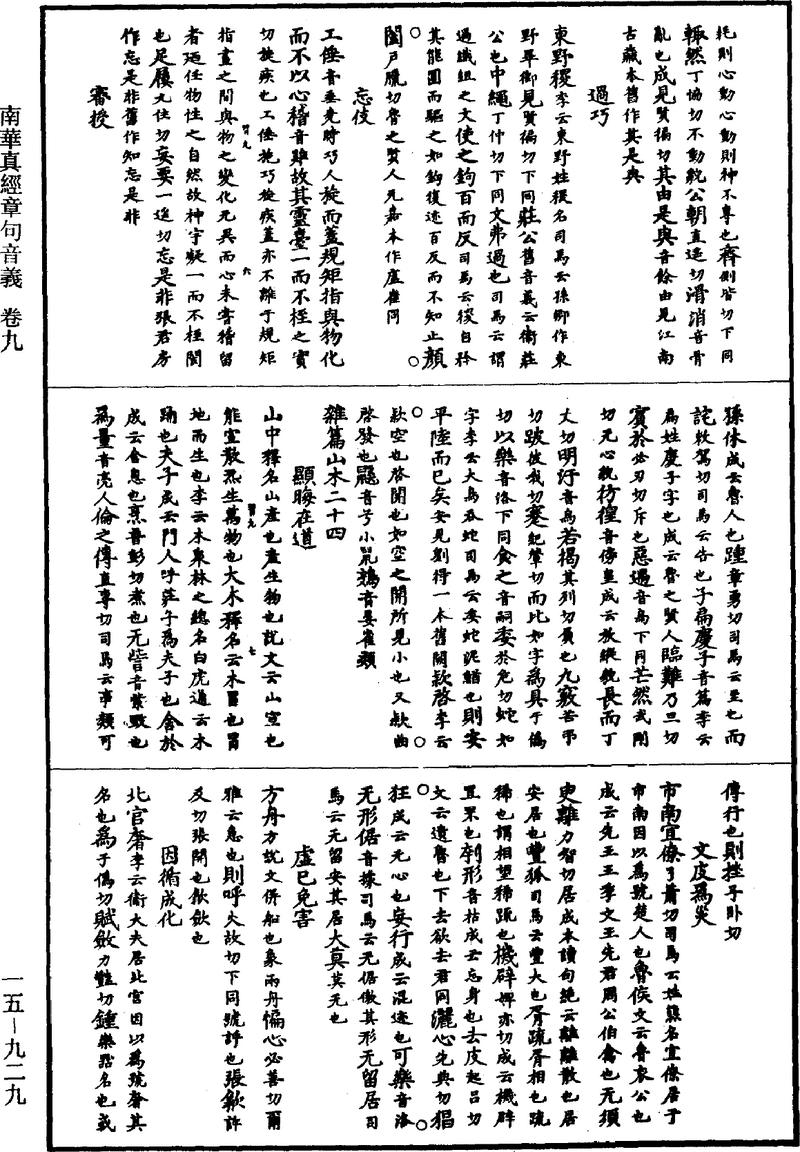 南華真經章句音義　卷九
耗則心動心動則神不專也齊側皆切下同
輒然丁協切不動貌公朝直遥切滑消音骨
亂也成見賢徧切其由是與音餘由見江南
古藏本舊作其是與
過巧
東野稷李云東野姓稷名司馬云孫卿作東
野畢御見賢徧切下同莊公舊音義云衛莊
公也中繩丁仲切下同文弗過也司馬云謂
過織組之文使之鉤百而反司馬云稷自矜
其能圓而驅之如鉤復迹百反而不知止顔
闔户臘切魯之賢人元嘉本作盧崔同
忘伎
工倕音垂堯時巧人旋而蓋規矩指與物化
而不以心稽音雞故其靈臺一而不桎之實
切旋疾也工倕旋巧旋疾蓋亦不離于規矩
指畫之間與物之變化无異而心未嘗稽留
者廼任物性之自然故神宇凝一而不桎閡
也足屨九住切妄要一遥切忘是非張君房
作忘是非舊作知忘是非
審授
孫休成云魯人也踵章勇切司馬云至也而
詫敕駕切司馬云告也子扁慶子音篇李云
扁姓慶子字也成云魯之賢人臨難乃旦切
賓於必刃切斥也惡遇音烏下同芒然武剛
切无心貌彷徨音傍皇成云放縱貌長而丁
丈切明汙音烏若揭其列切負也九竅苦弔
切跛彼我切蹇紀輦切而比如字爲具于僞
切以樂音洛下同食之音祠委於危切蛇如
字李云大鳥吞蛇司馬云委蛇泥鰌也則安
平陸而已矣安見劉得一本舊闕款啓李云
款空也啓開也如空之開所見小也又款曲
啓發也鼷音兮小鼠鴳音晏雀類
雜篇山木二十四
顯晦在道
山中釋名山產也產生物也說文云山宣也
能宣散炁生萬物也大木釋名云木冒也冒
地而生也李云木衆林之總名白虎通云木
踊也夫子成云門人呼莊子爲夫子也舍於
成云舍息也烹普彭切煮也无訾音紫毀也
爲量音亮人倫之傳直專切司馬云事類可
傳行也則挫子卧切
文皮爲災
市南宜僚了蕭切司馬云姓熊名宜僚居于
市南因以爲號楚人也魯侯文云魯哀公也
成云先王王季文王先君周公伯禽也无須
臾離力智切居成本讀句絶云離離散也居
安居也豐狐司馬云豐大也胥疏胥相也疏
稀也謂相望稀疏也機辟婢亦切成云機辟
罝罘也刳形音枯成云忘身也去皮起呂切
文云遺魯也下去欲去君同灑心先典切猖
狂成云无心也妄行成云混迹也可樂音洛
无形倨音據司馬云无倨傲其形无留居司
馬云无留安其居大莫莫无也
虛已免害
方舟方說文併船也象兩舟惼心必善切爾
雅云急也則呼火故切下同號評也張歙許
及切張開也歙斂也
因循成化
北宫奢李云衛大夫居北宫因以爲號奢其
名也爲于僞切賦斂力豔切鍾樂器名也或
一五—九二九